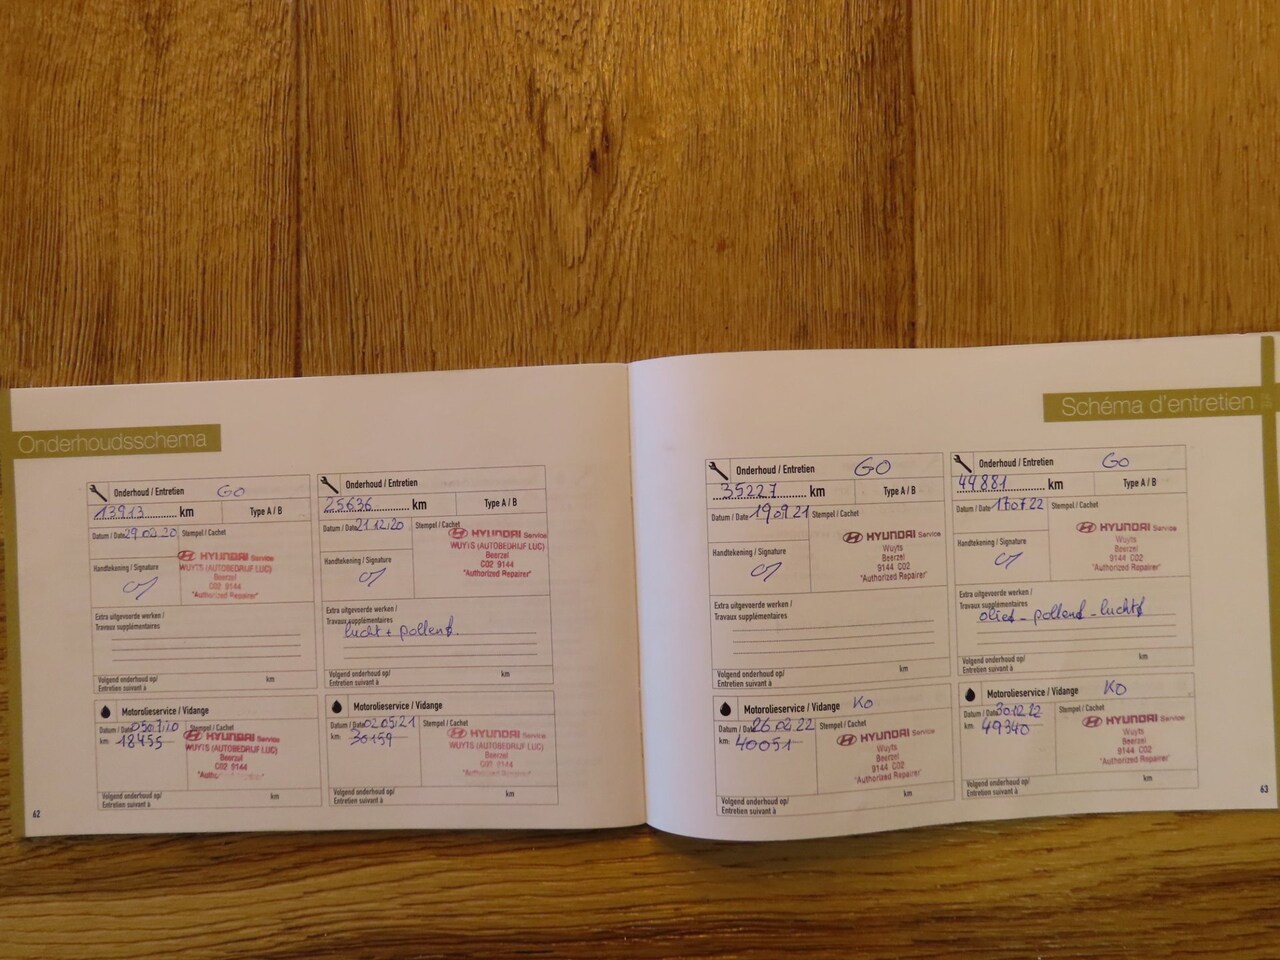 Onderhoudsschema
Onderhoud / Entretien GO
13913 km Type A / B
Datum / Date 29.02.20 Stempel / Cachet
HYUNDAI Service
WUYTS (AUTOBEDRIJF LUC)
Beerzel
C02 9144
"Authorized Repairer"
Handtekening / Signature
Extra uitgevoerde werken /
Travaux supplémentaires
Volgend onderhoud op/ km
Entretien suivant à
Motorolieservice / Vidange
Datum / Date 05.07.20 Stempel / Cachet
km: 18455
HYUNDAI Service
WUYTS (AUTOBEDRIJF LUC)
Beerzel
C02 9144
Volgend onderhoud op/ km
Entretien suivant à
Onderhoud / Entretien
25636 km Type A / B
Datum / Date 21.12.20 Stempel / Cachet
HYUNDAI Service
WUYTS (AUTOBEDRIJF LUC)
Beerzel
C02 9144
"Authorized Repairer"
Handtekening / Signature
Extra uitgevoerde werken /
Travaux supplémentaires
lucht + pollenf.
Volgend onderhoud op/ km
Entretien suivant à
Motorolieservice / Vidange
Datum / Date 02.05.21 Stempel / Cachet
km: 30159
HYUNDAI Service
WUYTS (AUTOBEDRIJF LUC)
Beerzel
C02 9144
Volgend onderhoud op/ km
Entretien suivant à
62
Schéma d'entretien
Onderhoud / Entretien GO
35227 km Type A / B
Datum / Date 19.09.21 Stempel / Cachet
HYUNDAI Service
Wuyts
Beerzel
9144 C02
"Authorized Repairer"
Handtekening / Signature
Extra uitgevoerde werken /
Travaux supplémentaires
Volgend onderhoud op/ km
Entretien suivant à
Motorolieservice / Vidange KO
Datum / Date 26.02.22 Stempel / Cachet
km: 40051
HYUNDAI Service
Wuyts
Beerzel
9144 C02
"Authorized Repairer"
Volgend onderhoud op/ km
Entretien suivant à
Onderhoud / Entretien GO
44881 km Type A / B
Datum / Date 17.07.22 Stempel / Cachet
HYUNDAI Service
Wuyts
Beerzel
9144 C02
"Authorized Repairer"
Handtekening / Signature
Extra uitgevoerde werken /
Travaux supplémentaires
olief - pollenf - luchtf
Volgend onderhoud op/ km
Entretien suivant à
Motorolieservice / Vidange KO
Datum / Date 30.12.22 Stempel / Cachet
km: 49340
HYUNDAI Service
Wuyts
Beerzel
9144 C02
"Authorized Repairer"
Volgend onderhoud op/ km
Entretien suivant à
63